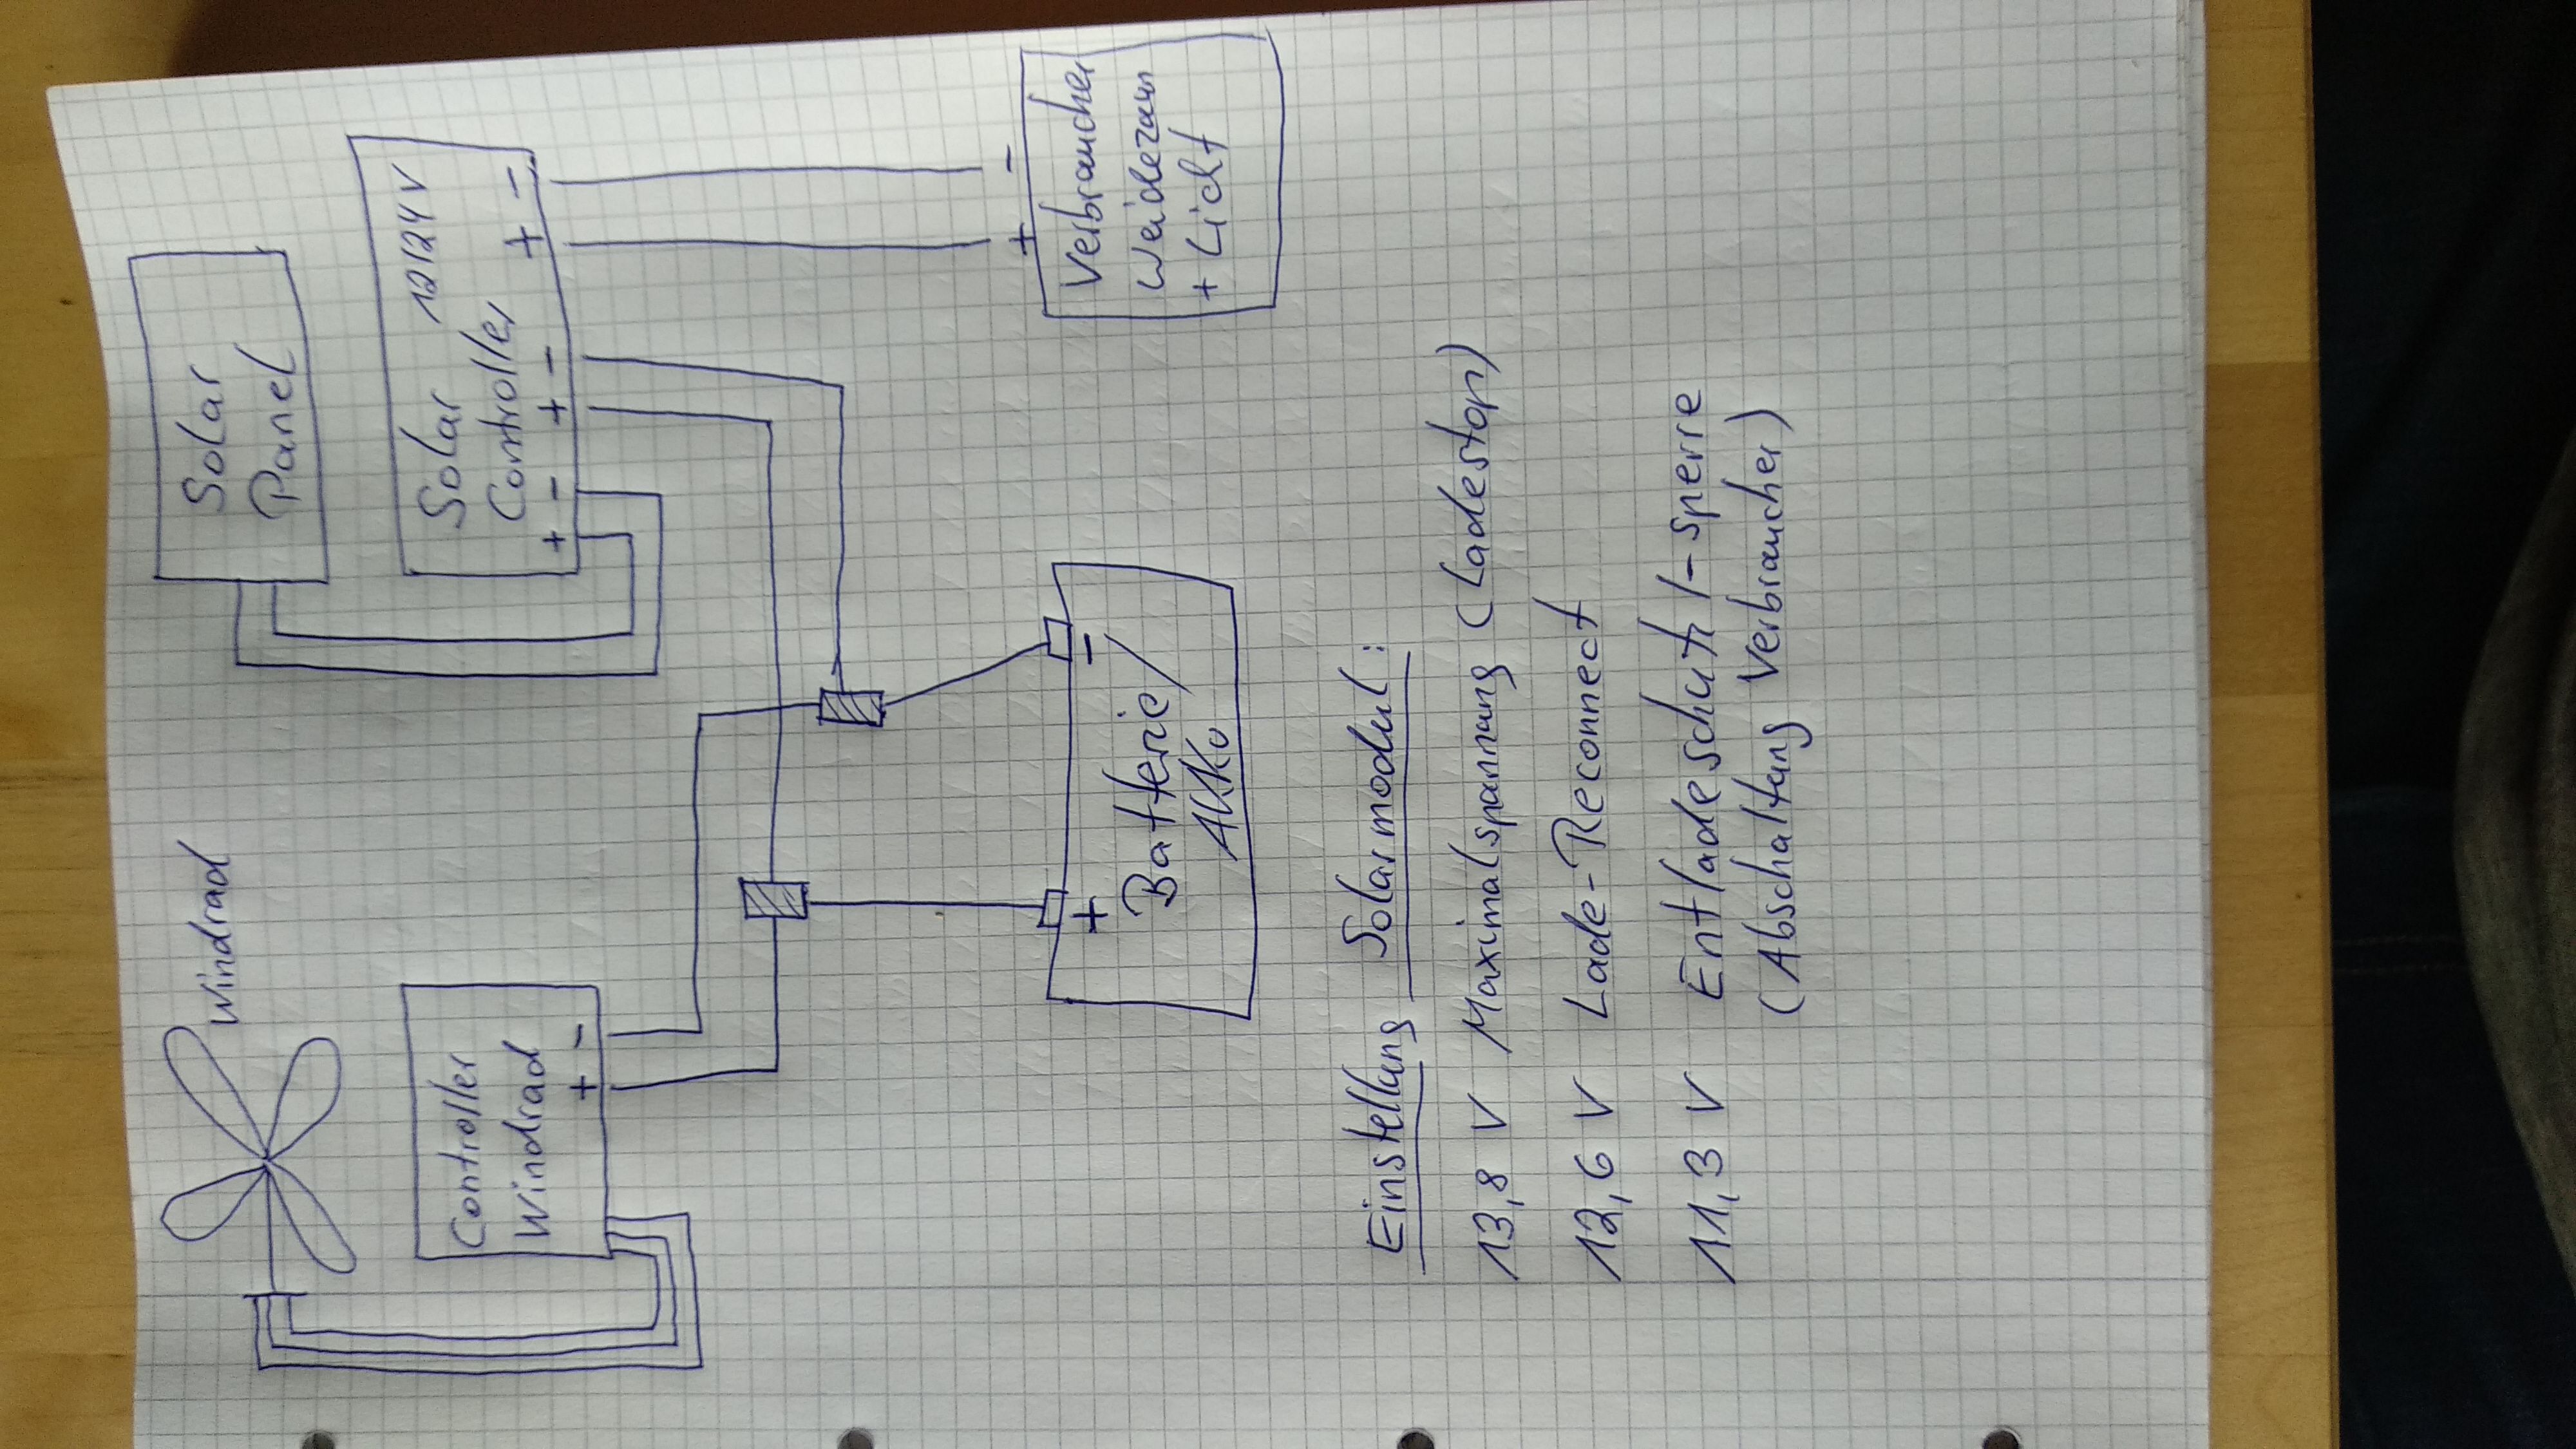 Windrad
Solar
Panel
Controller
Windrad
+ -
Solar 12/24 V
Controller
+ - + - + -
+ -
Batterie/
Akku
+ -
Verbraucher
Weidezaun
+ Licht
Einstellung Solarmodul:
13,8 V Maximalspannung (Ladestop)
12,6 V Lade-Reconnect
11,3 V Entladeschutz/-sperre
(Abschaltung Verbraucher)